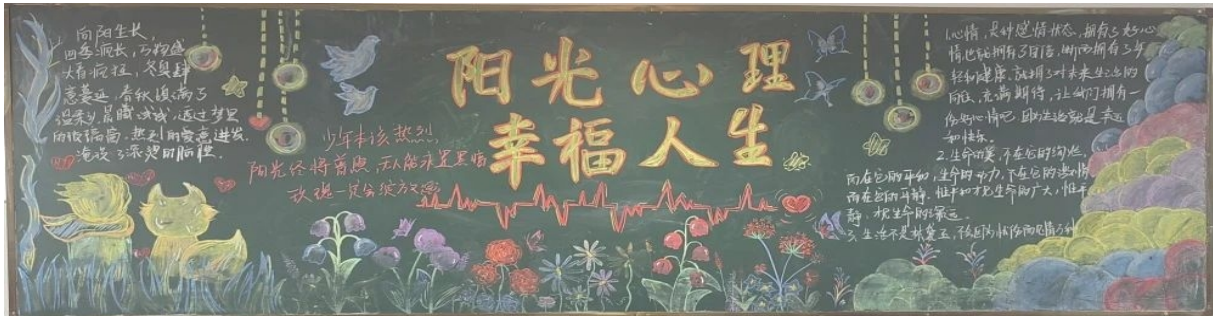 向阳生长,
四季疯长,万物盛
大看疯狂,冬奥肆
意蔓延,春秋填满了
阳光心理
幸福人生
少年本该热烈
阳光终将普照,无人能永是黑暗
玫瑰一定会绽放
1.心情,是种感情状态,拥有了好心
情也就拥有了自信,继而拥有了年
轻和健康。就拥有了对未来生活的
向往,充满期待,让我们拥有一
份好心情吧,因为活着就是幸运
和快乐。
2.生命的美,不在它的绚烂,
而在它的平和;生命的动力,不在它的激情
而在它的平静。惟平和才见生命的广大,惟平
静,才见生命的深远。
3.生活不是林黛玉,不会因为忧伤而风情万种